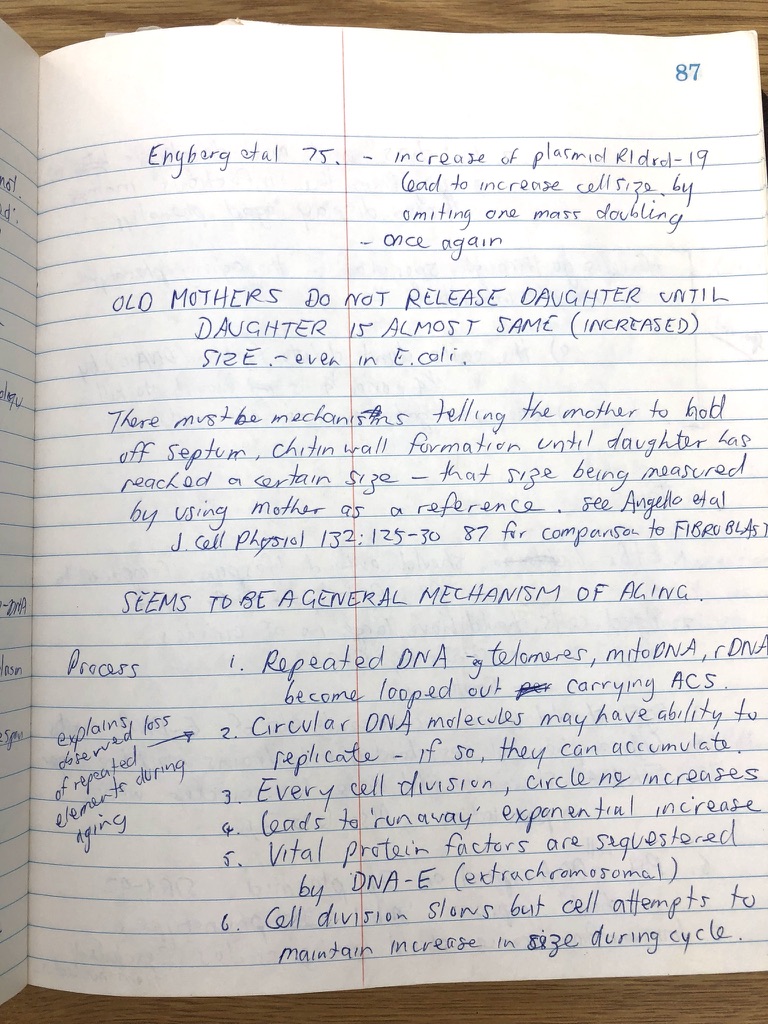 87
Engberg etal 75. - increase of plasmid R1drd-19
lead to increase cell size by
omiting one mass doubling
- once again
OLD MOTHERS DO NOT RELEASE DAUGHTER UNTIL
DAUGHTER IS ALMOST SAME (INCREASED)
SIZE. - even in E.coli.
There must be mechanisms telling the mother to hold
off septum, chitin wall formation until daughter has
reached a certain size - that size being measured
by using mother as a reference. see Angello etal
J. Cell Physiol 132:125-30 87 for comparison to FIBROBLAST
SEEMS TO BE A GENERAL MECHANISM OF AGING.
Process
1. Repeated DNA eg telomeres, mitoDNA, rDNA
become looped out carrying ACS.
explains loss
observed
of repeated
elements during
aging
2. Circular DNA molecules may have ability to
replicate - if so, they can accumulate.
3. Every cell division, circle no increases
4. leads to 'runaway' exponential increase
5. Vital protein factors are sequestered
by DNA-E (extrachromosomal)
6. Cell division slows but cell attempts to
maintain increase in size during cycle.
not.
ed:
ology
-DNA